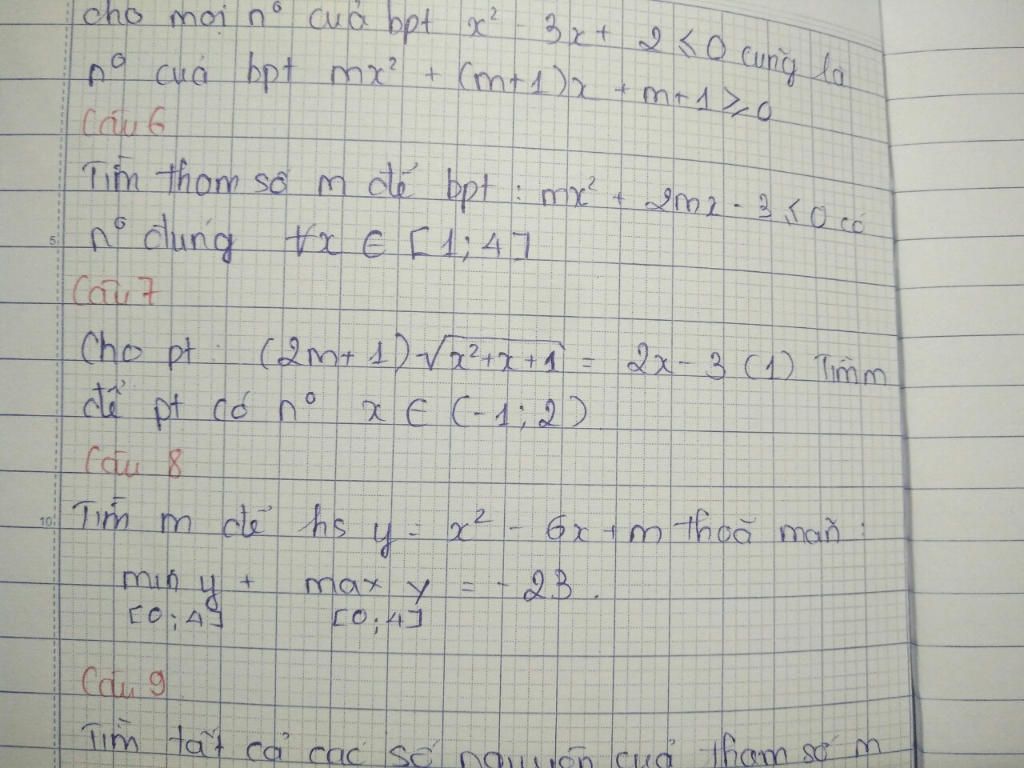 cho mọi n° của bpt x² - 3x + 2 ≤ 0 cũng là
n° của bpt mx² + (m+1)x + m+1 ≥ 0
Câu 6
Tìm tham số m để bpt : mx² + 2mx - 3 ≤ 0 có
5
n° đúng ∀x ∈ [1;4]
Câu 7
Cho pt : (2m+1)√x²+x+1 = 2x-3 (1) Tìm m
để pt có n° x ∈ (-1;2)
Câu 8
10
Tìm m để hs y = x² - 6x + m thoã mãn :
min y + max y = -23.
[0;4] [0;4]
Câu 9
Tìm tất cả các số nguyên của tham số m